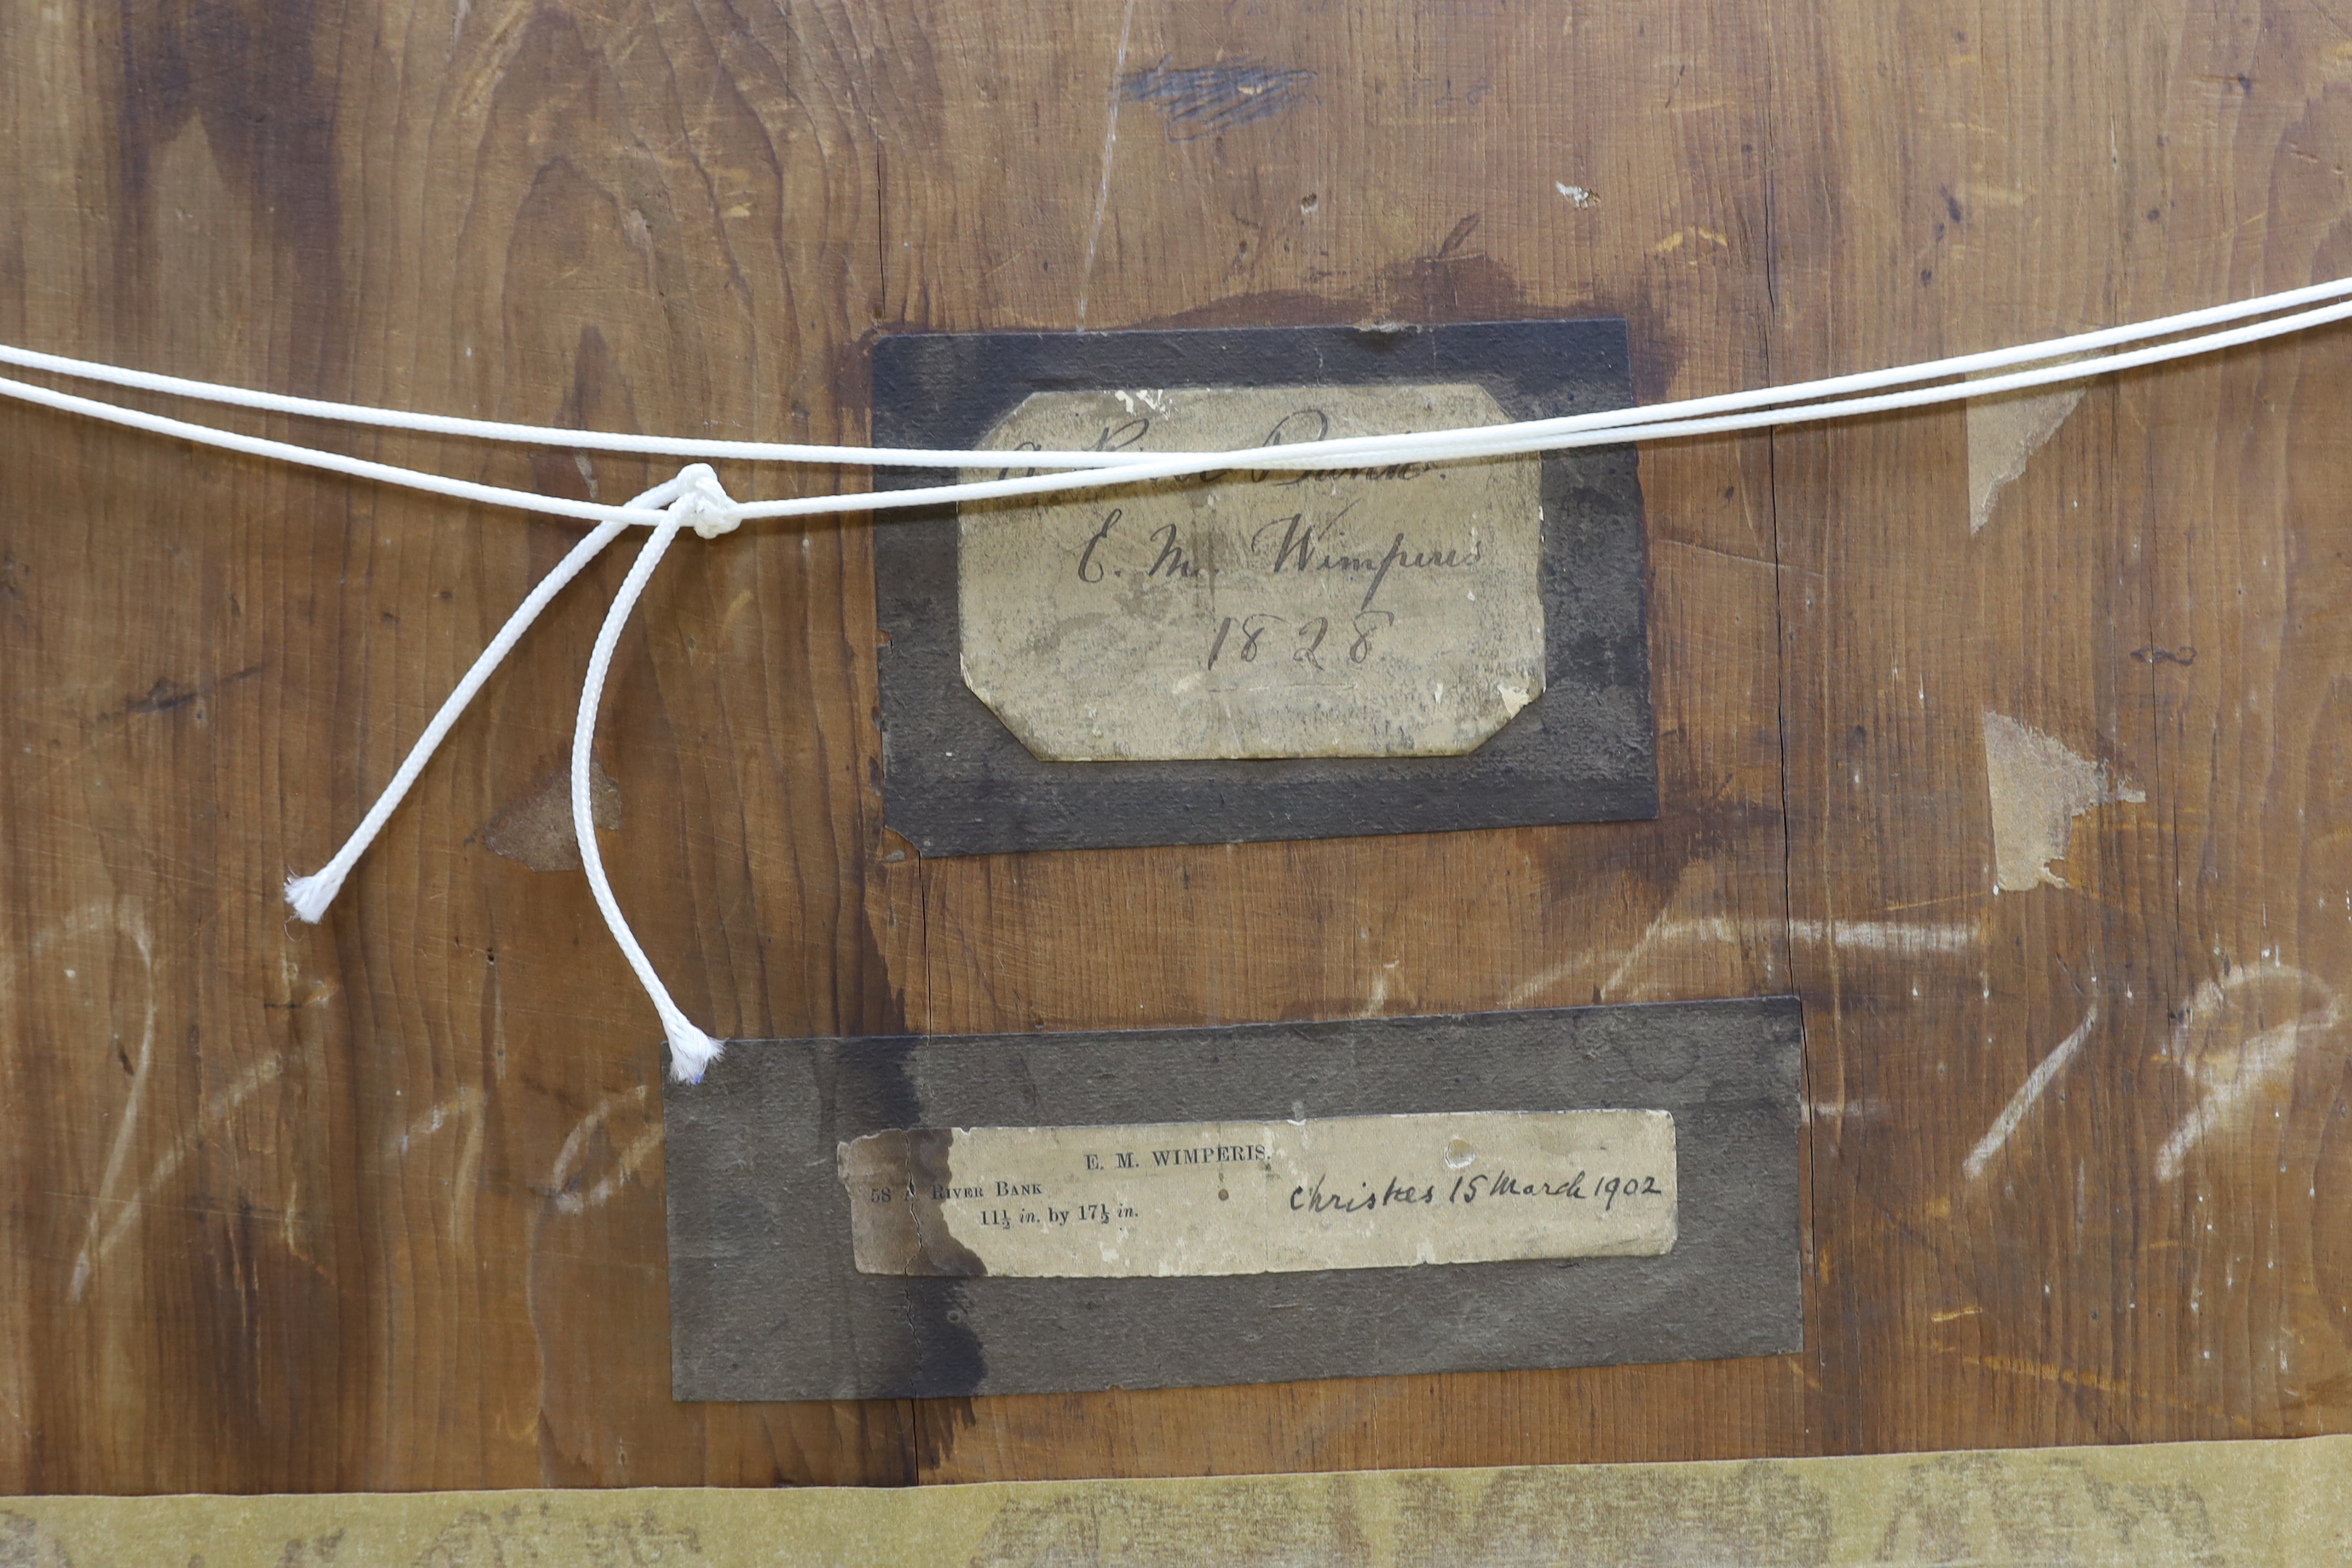 A River Bank.
E. M. Wimperis
1828
E. M. WIMPERIS.
58 A RIVER BANK
11½ in. by 17½ in.
Christies 15 March 1902